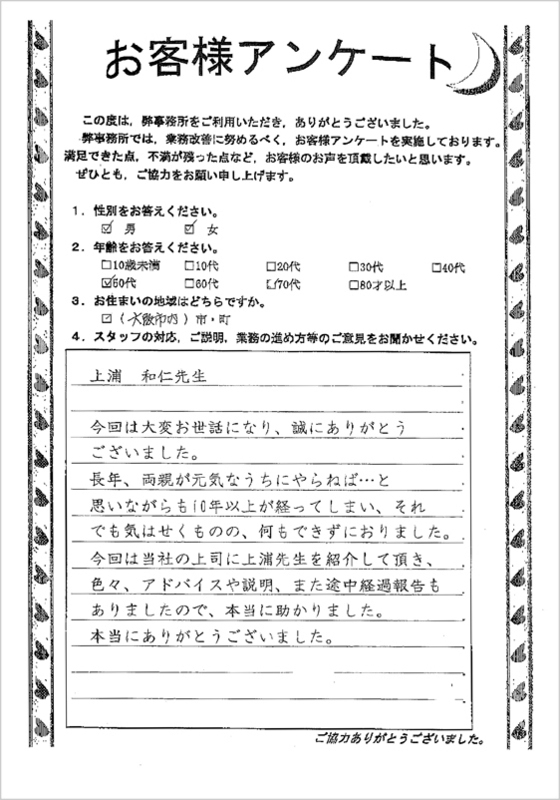 お客様アンケート
この度は，弊事務所をご利用いただき，ありがとうございました。
弊事務所では，業務改善に努めるべく，お客様アンケートを実施しております。
満足できた点，不満が残った点など，お客様のお声を頂戴したいと思います。
ぜひとも，ご協力をお願い申し上げます。
１．性別をお答えください。
☑ 男 ☑ 女
２．年齢をお答えください。
□10歳未満 □10代 □20代 □30代 □40代
☑50代 □60代 ☑70代 □80才以上
３．お住まいの地域はどちらですか。
☑（大阪市内）市・町
４．スタッフの対応，ご説明，業務の進め方等のご意見をお聞かせください。
上浦 和仁先生
今回は大変お世話になり、誠にありがとう
ございました。
長年、両親が元気なうちにやらねば…と
思いながらも10年以上が経ってしまい、それ
でも気はせくものの、何もできずにおりました。
今回は当社の上司に上浦先生を紹介して頂き、
色々、アドバイスや説明、また途中経過報告も
ありましたので、本当に助かりました。
本当にありがとうございました。
ご協力ありがとうございました。